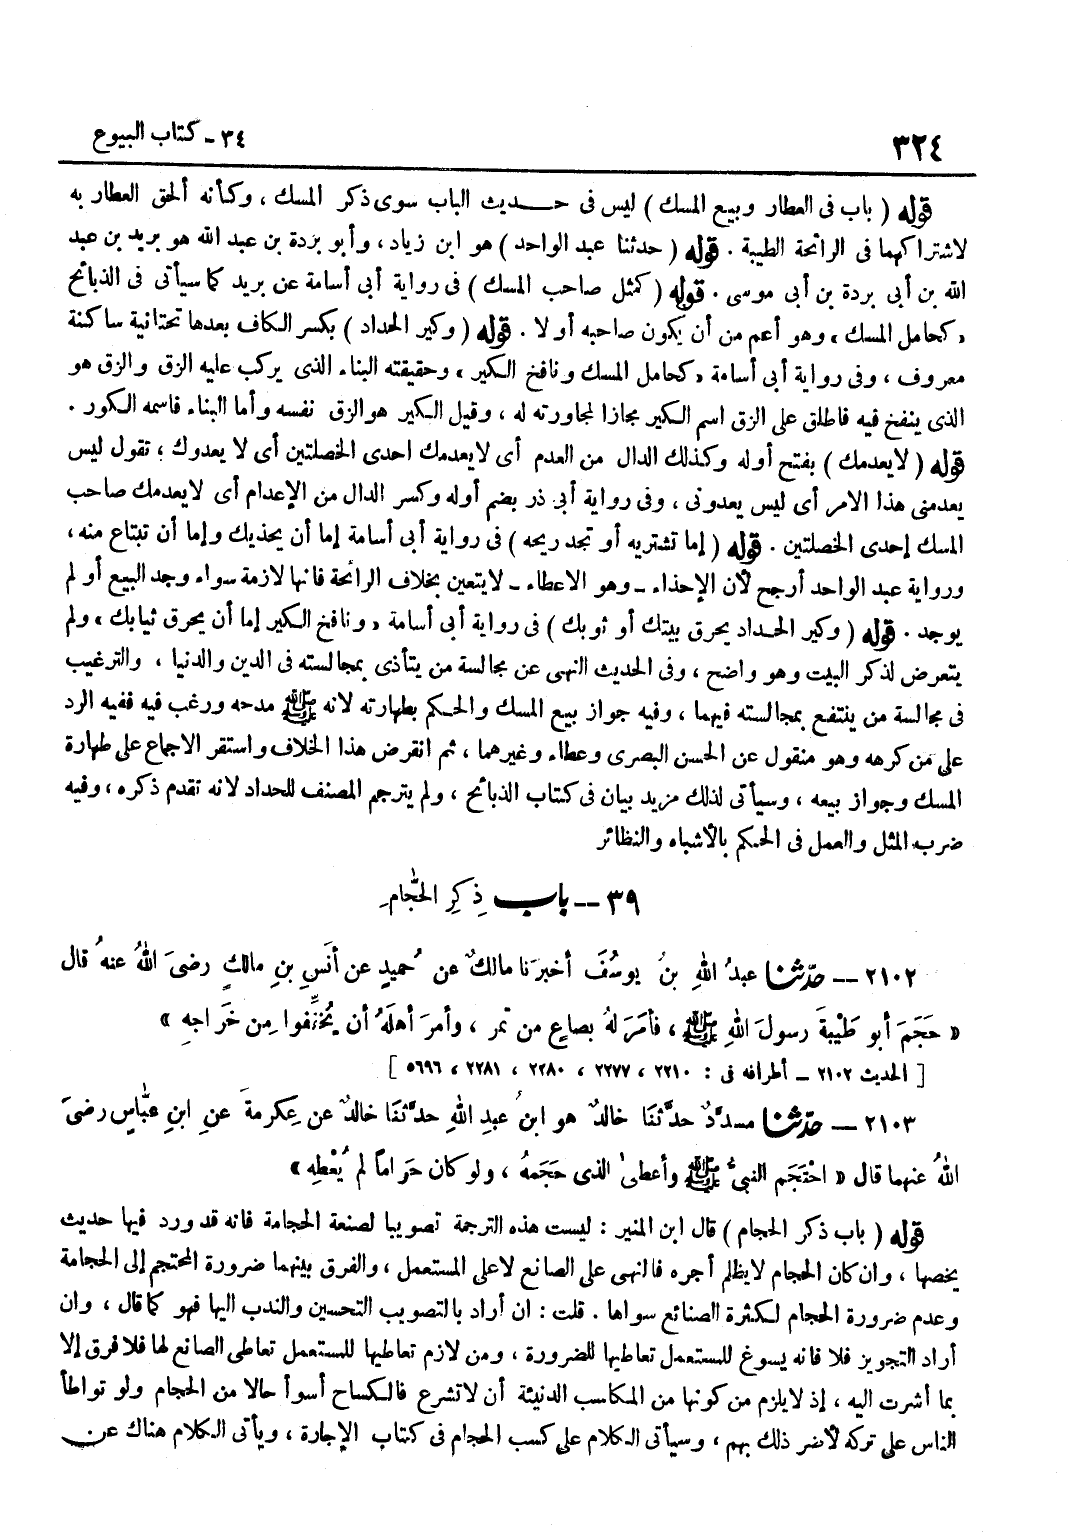 ٣٢٤
٣٤ - كتاب البيوع
قوله ( باب فى العطار وبيع المسك ) ليس فى حديث الباب سوى ذكر المسك ، وكأنه ألحق العطار به
لاشتراكهما فى الرائحة الطيبة . قوله ( حدثنا عبد الواحد ) هو ابن زياد ، وأبو بردة بن عبد الله هو بريد بن عبد
الله بن أبى بردة بن أبى موسى . قوله ( كمثل صاحب المسك ) فى رواية أبى أسامة عن بريد كما سيأتى فى الذبائح
« كحامل المسك » وهو أعم من أن يكون صاحبه أو لا . قوله ( وكير الحداد ) بكسر الكاف بعدها تحتانية ساكنة
معروف ، وفى رواية أبى أسامة « كحامل المسك ونافخ الكير » وحقيقته البناء الذى يركب عليه الزق والزق هو
الذى ينفخ فيه فاطلق على الزق اسم الكير مجازا لمجاورته له ، وقيل الكير هو الزق نفسه وأما البناء فاسمه الكور .
قوله ( لا يعدمك ) بفتح أوله وكذلك الدال من العدم أى لا يعدمك احدى الخصلتين أى لا يعدوك ؛ تقول ليس
يعدمنى هذا الامر أى ليس يعدونى ، وفى رواية أبى ذر بضم أوله وكسر الدال من الإعدام أى لا يعدمك صاحب
المسك إحدى الخصلتين . قوله ( إما تشتريه أو تجد ريحه ) فى رواية أبى أسامة إما أن يحذيك وإما أن تبتاع منه ،
ورواية عبد الواحد أرجح لأن الإحذاء - وهو الاعطاء - لا يتعين بخلاف الرائحة فانها لازمة سواء وجد البيع أو لم
يوجد . قوله ( وكير الحداد يحرق بيتك أو ثوبك ) فى رواية أبى أسامة « ونافخ الكير إما أن يحرق ثيابك » ولم
يتعرض لذكر البيت وهو واضح ، وفى الحديث النهى عن مجالسة من يتأذى بمجالسته فى الدين والدنيا ، والترغيب
فى مجالسة من ينتفع بمجالسته فيهما ، وفيه جواز بيع المسك والحكم بطهارته لانه ﷺ مدحه ورغب فيه ففيه الرد
على من كرهه وهو منقول عن الحسن البصرى وعطاء وغيرهما ، ثم انقرض هذا الخلاف واستقر الاجماع على طهارة
المسك وجواز بيعه ، وسيأتى لذلك مزيد بيان فى كتاب الذبائح ، ولم يترجم المصنف للحداد لانه تقدم ذكره ، وفيه
ضرب المثل والعمل فى الحكم بالأشباه والنظائر
٣٩ -- باب ذِكرِ الحَجَّام
٢١٠٢ -- حدّثنا عبدُ اللهِ بنُ يوسُفَ أخبرَنا مالكٌ عن حُميدٍ عن أنَسِ بنِ مالكٍ رضىَ اللهُ عنهُ قال
« حَجَمَ أبو طَيْبةَ رسولَ اللهِ ﷺ ، فأمَرَ لهُ بصاعٍ من تمرٍ ، وأمرَ أهلَهُ أن يُخفِّفوا مِن خَراجهِ »
[ الحديث ٢١٠٢ - أطرافه فى : ٢٢١٠ ، ٢٢٧٧ ، ٢٢٨٠ ، ٢٢٨١ ، ٥٦٩٦ ]
٢١٠٣ -- حدّثنا مسدَّدٌ حدَّثنَا خالدٌ هو ابنُ عبدِ اللهِ حدَّثنَا خالدٌ عن عِكرمةَ عنِ ابنِ عبَّاسٍ رضىَ
اللهُ عنهما قال « احْتَجَم النبىُّ ﷺ وأعطىٰ الذى حَجَمَهُ ، ولو كان حَراماً لم يُعْطِهِ »
قوله ( باب ذكر الحجام ) قال ابن المنير : ليست هذه الترجمة تصويبا لصنعة الحجامة فانه قد ورد فيها حديث
يخصها ، وان كان الحجام لا يظلم أجره فالنهى على الصانع لا على المستعمل ، والفرق بينهما ضرورة المحتجم إلى الحجامة
وعدم ضرورة الحجام لكثرة الصنائع سواها . قلت : ان أراد بالتصويب التحسين والندب اليها فهو كما قال ، وان
أراد التجويز فلا فانه يسوغ للمستعمل تعاطيها للضرورة ، ومن لازم تعاطيها للمستعمل تعاطى الصانع لها فلا فرق إلا
بما أشرت اليه ، إذ لا يلزم من كونها من المكاسب الدنيئة أن لا تشرع فالكساح أسوأ حالا من الحجام ولو تواطأ
الناس على تركه لأضر ذلك بهم ، وسيأتى الكلام على كسب الحجام فى كتاب الإجارة ، ويأتى الكلام هناك عن